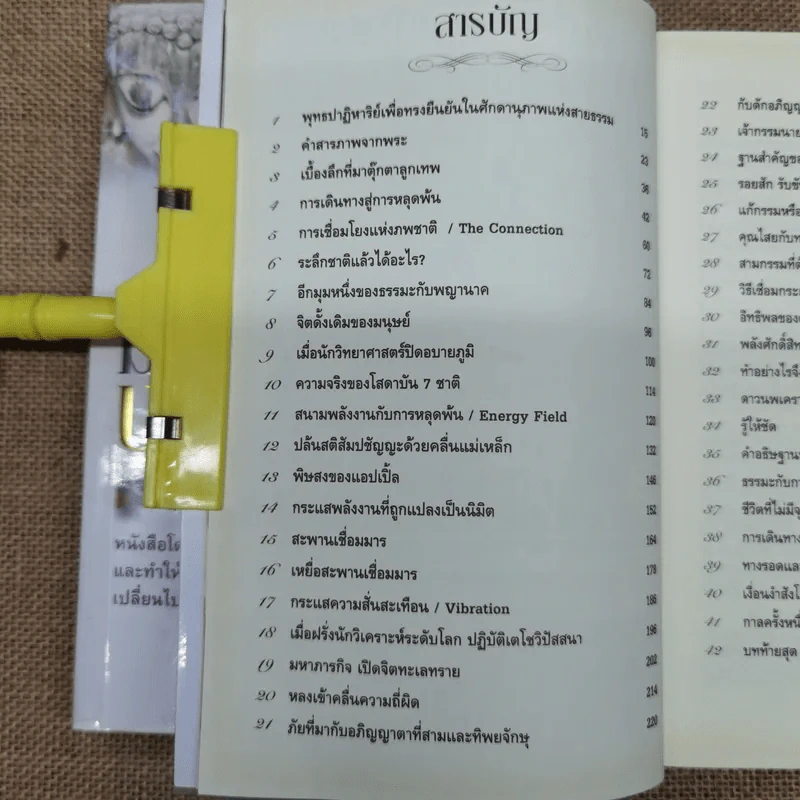 สารบัญ
1 พุทธปาฏิหาริย์เพื่อทรงยืนยันในศักดานุภาพแห่งสายธรรม 15
2 คำสารภาพจากพระ 23
3 เบื้องลึกที่มาตุ๊กตาลูกเทพ 36
4 การเดินทางสู่การหลุดพ้น 42
5 การเชื่อมโยงแห่งภพชาติ / The Connection 60
6 ระลึกชาติแล้วได้อะไร? 72
7 อีกมุมหนึ่งของธรรมะกับพญานาค 84
8 จิตดั้งเดิมของมนุษย์ 96
9 เมื่อนักวิทยาศาสตร์ปิดอบายภูมิ 100
10 ความจริงของโสดาบัน 7 ชาติ 114
11 สนามพลังงานกับการหลุดพ้น / Energy Field 120
12 ปล้นสติสัมปชัญญะด้วยคลื่นแม่เหล็ก 132
13 พิษสงของแอปเปิ้ล 146
14 กระแสพลังงานที่ถูกแปลงเป็นนิมิต 152
15 สะพานเชื่อมมาร 164
16 เหยื่อสะพานเชื่อมมาร 178
17 กระแสความสั่นสะเทือน / Vibration 186
18 เมื่อฝรั่งนักวิเคราะห์ระดับโลก ปฏิบัติเตโชวิปัสสนา 196
19 มหาภารกิจ เปิดจิตทะเลทราย 202
20 หลงเข้าคลื่นความถี่ผิด 214
21 ภัยที่มากับอภิญญาตาที่สามและทิพยจักษุ 220
22 กับดักอภิญญ
23 เจ้ากรรมนาย
24 ฐานสำคัญขอ
25 รอยสัก รับขั
26 แก้กรรมหรือ
27 คุณไสยกับท
28 สามกรรมที่
29 วิธีเชื่อมกระ
30 อิทธิพลของ
31 พลังศักดิ์สิท
32 ทำอย่างไรจึ
33 ดาวนพเครา
34 รู้ให้ชัด
35 คำอธิษฐาน
36 ธรรมะกับกา
37 ชีวิตที่ไม่มีจุ
38 การเดินทาง
39 ทางรอดแล
40 เงื่อนงำสังโ
41 กาลครั้งหนึ่
42 บทท้ายสุด
หนังสือโด
และทำให้
เปลี่ยนไป